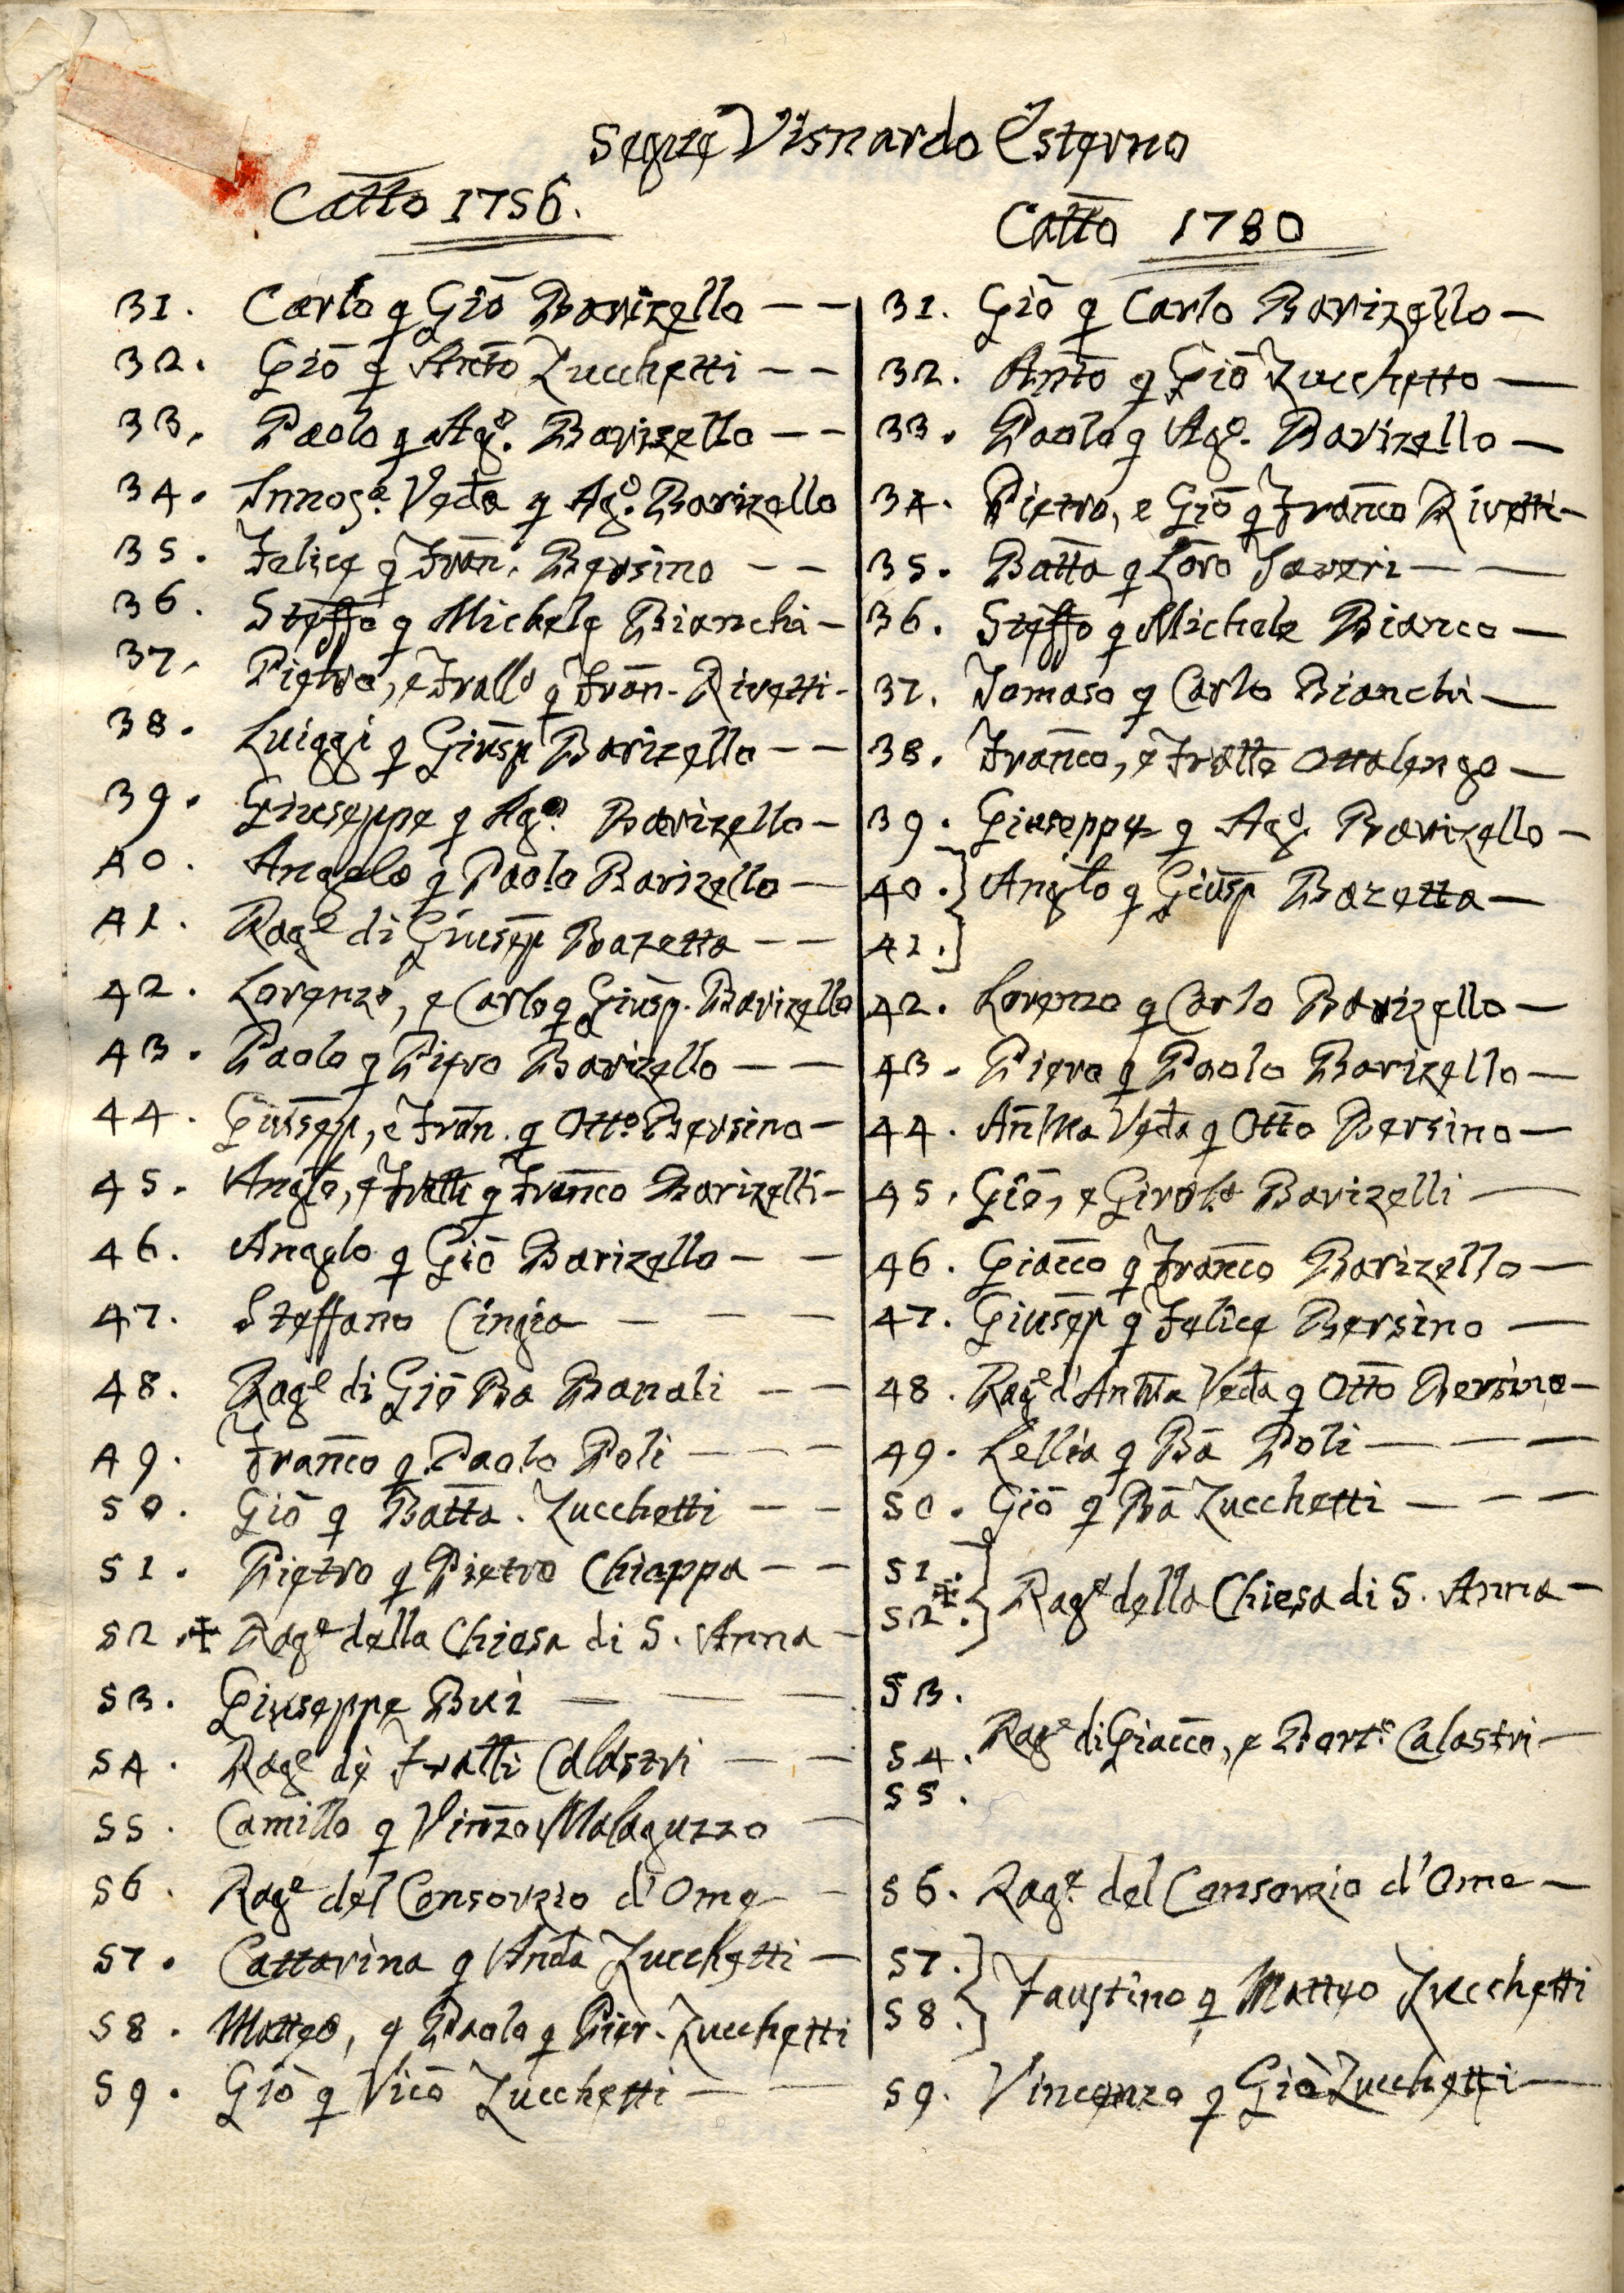 Segue Visnardo Esterno
Catto 1756.
Catto 1780
31. Carlo q Gio Barizello — —
32. Gio q Anto Zucchetti — —
33. Paolo q Ago. Barizello — —
34. Veda q Ago. Barizello
35. Felice q Fran. Bersino — —
36. Steffo q Michele Bianchi —
37. Pietro, e Frallo q Fran. Rivetti —
38. Luiggi q Giusep Barizello — —
39. Giuseppe q Ago. Barizello —
40. Angelo q Paolo Barizello —
41. Rage di Giusep Bazetta — —
42. Lorenzo, e Carlo q Giusp. Barizello
43. Paolo q Piero Barizello — —
44. Giusep, e Fran. q Otto Bersino —
45. Anglo, e Fratti q Franco Barizelli —
46. Angelo q Gio Barizello — —
47. Steffano Cingia — — —
48. Rage di Gio Ba Banali — —
49. Franco q Paolo Poli — — —
50. Gio q Batta. Zucchetti — —
51. Pietro q Pietro Chiappa — —
52. ✠ Rage della Chiesa di S. Anna —
53. Giuseppe Bui — — —
54. Rage de Fratti Calastri — —
55. Camillo q Vinzo Malaguzzo —
56. Rage del Consorzio d'Ome —
57. Cattarina q Anda Zucchetti —
58. Matteo, e Paolo q Pier. Zucchetti
59. Gio q Vico Zucchetti — —
31. Gio q Carlo Barizello —
32. Anto q Gio Zucchetto —
33. Paolo q Ago. Barizello —
34. Pietro, e Gio q Franco Rivetti —
35. Batta q Loro — —
36. Steffo q Michele Bianco —
37. Tomaso q Carlo Bianchi —
38. Franco, e Fratto Ottolengo —
39. Giuseppe q Ago. Barizello —
40. } Anglo q Giusp Bazetta —
41. }
42. Lorenzo q Carlo Barizello —
43. Piero q Paolo Barizello —
44. Veda q Otto Bersino —
45. Gio, e Girolo Barizelli —
46. Giacco q Franco Barizello —
47. Giusep q Felice Bersino —
48. Rage d' Veda q Otto Bersino —
49. Lellia q Ba Poli — — —
50. Gio q Ba Zucchetti — — —
51. }
✠ 52. } Rage della Chiesa di S. Anna —
53.
54. Rage di Giacco, e Barto Calastri —
55.
56. Rage del Consorzio d'Ome —
57. }
58. } Faustino q Matteo Zucchetti
59. Vincenzo q Gio Zucchetti —